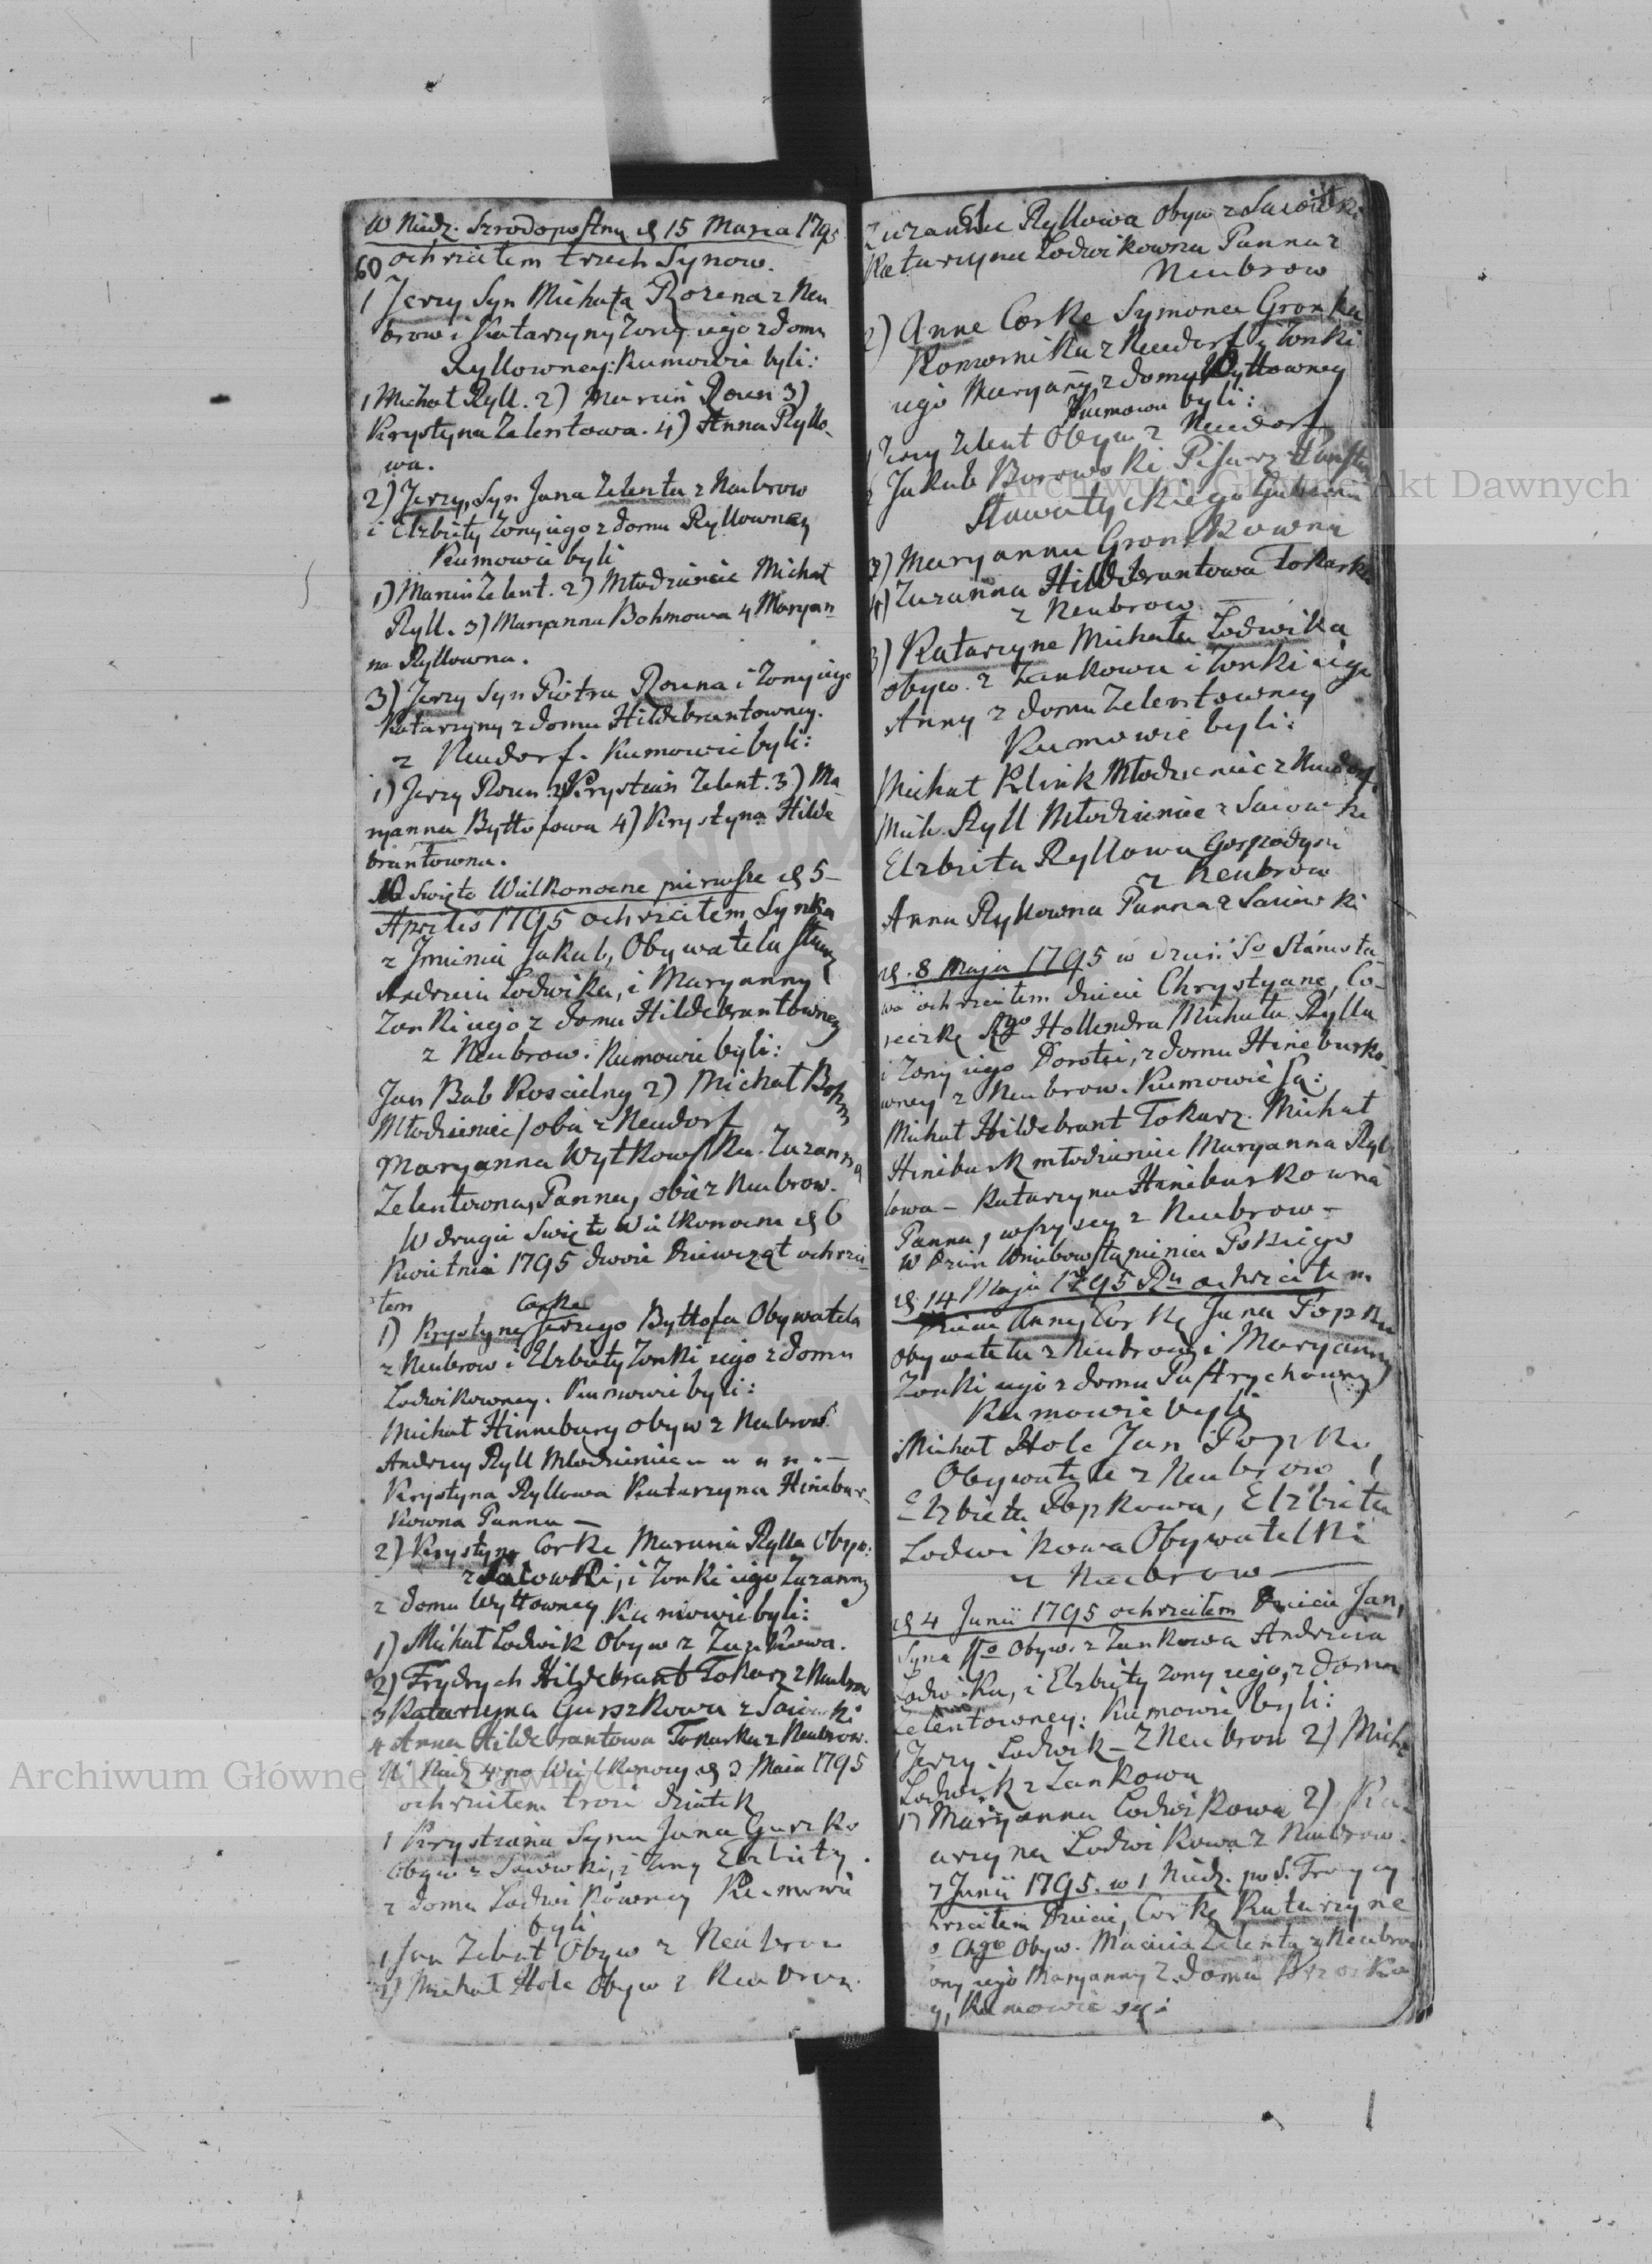 W Niedz. Szrodopostną d 15 Marca 1795
60 ochrzciłem trzech Synow.
1 Jerzy Syn Michała Rozena z Neu
brow i Katarzyny Zony iego z domu
Ryllowney: Kumowie byli:
1 Michał Ryll. 2) Marcin Rozen 3)
Krystyna Zelentowa. 4) Anna Ryllo-
wa.
2) Jerzy, Syn Jana Zelenta z Neubrow
i Elzbiety Zony iego z domu Ryllowney
Kumowie byli
1) Marcin Zelent. 2) Młodzieniec Michał
Ryll. 3) Maryanna Bohmowa 4 Maryan-
na Ryllowna.
3) Jerzy Syn Piotra Rozena i Zony iego
Katarzyny z domu Hildebrantowney.
z Neudorf. Kumowie byli:
1) Jerzy Rozen 2) Krystian Zelent. 3) Ma-
ryanna Byttofowa 4) Krystyna Hilde
brantowna.
W Swięto Wielkonocne pierwsze d 5-
Aprilis 1795 ochrzciłem Synka
z Jmienia Jakub, Obywatela
Andrzeia Lodwika, i Maryanny
Zonki iego z domu Hildebrantowney
z Neubrow. Kumowie byli:
Jan Bab Koscielny 2) Michał Bohm
Młodzieniec / oba z Neudorf
Maryanna Wytkowska. Zuzanna
Zelentowna, Panna, obie z Neubrow.
W drugie Swięto Wielkonocne d 6
Kwietnia 1795 dwoie dziewcząt ochrzci
łem
Corkę
1) Krystynę Jerzego Byttofa Obywatela
z Neubrow i Elzbiety Zonki iego z domu
Lodwikowney. Kumowie byli:
Michał Hinneburg obyw z Neubrow
Andrzey Ryll Młodzieniec
Krystyna Ryllowa Katarzyna Hinebur-
kowna Panna -
2) Krystynę Corkę Marcina Rylla Obyw.
z Saiowki, i Zonki iego Zuzanny
z domu Wyttowney Kumowie byli:
1) Michał Lodwik Obyw z Zankowa.
2) Frydrych Hildebrant Tokarz z Neubrow
3 Katarzyna Guszkowa z Saiowki
4 Anna Hildebrantowa Tokarka z Neubrow.
W Niedz 4 po Wielkonocy d 3 Maia 1795
ochrzciłem troie dziatek
1 Krystiana Syna Jana Guszko
Obyw z Saiowki, i Zony Elzbiety
z domu Lodwikowney Kumowie
byli
1 Jan Zelent Obyw z Neubrow
2) Michał Hole Obyw z Neubrow.
61
Zuzanna Ryllowa Obyw z Saiowki
Katarzyna Lodwikowna Panna z
Neubrow
2) Annę Corkę Symona Gronka
Komornika z Neudorf i Zonki
iego Maryanny z domu Ryttowney
Kumowie byli:
Jerzy Zelent Obyw z Neudorf
Jakub Borowski Pisarz
Sławatyckiego
3) Maryanna Gronkowna
4) Zuzanna Hildebrantowa Tokarka
z Neubrow
3) Katarzynę Michała Lodwika
obyw. z Zankowa i Zonki iego
Anny z domu Zelentowney
Kumowie byli:
Michał Klink Młodzieniec z Neudorf
Mich. Ryll Młodzieniec z Saiowki
Elzbieta Ryllowa Gospodyni
z Neubrow
Anna Ryllowna Panna z Saiowki
d. 8 Maja 1795 w dzień So Stánisła-
wa ochrzciłem dziecie Chrystyanę, Co-
reczkę Hollendra Michała Rylla
i Zony iego Doroti, z domu Hineburko-
wney z Neubrow. Kumowie są:
Michał Hildebrant Tokarz. Michał
Hineburk młodzieniec Maryanna Ryl-
lowa - Katarzyna Hineburkowna
Panna, wszyscy z Neubrow -
W Dzień Wniebowstąpienia Pskiego
d. 14 Maja 1795 Ru ochrzciłem
Dziecie Annę, Corkę Jana Popka
Obywatela z Neubrow i Maryanny
Zonki iego z domu Pastrychowney
Kumowie byli
Michał Hole Jan Popko,
Obywatele z Neubrow
Elzbieta Popkowa, Elzbieta
Lodwikowa Obywatelki
z Neubrow
d 4 Junii 1795 ochrzciłem Dziecie Jan,
Syna Obyw. z Zankowa Andrzeia
Lodwika, i Elzbiety zony iego, z domu
Zelentowney: Kumowie byli:
1 Jerzy Lodwik - Z Neubrow 2) Mich.
Lodwik z Zankowa
1) Maryanna Lodwikowa 2) Ka-
arzyna Lodwikowa z Neubrow.
7 Junii 1795. w 1 Niedz. po S. Troycy
hrzciłem Dziecie, Corkę Katarzynę
Obyw. Macieia Zelenta z Neubrow
ony iego Maryanny z domu
y, Kumowie są:
Archiwum Główne Akt Dawnych
Archiwum Główne Akt Dawnych